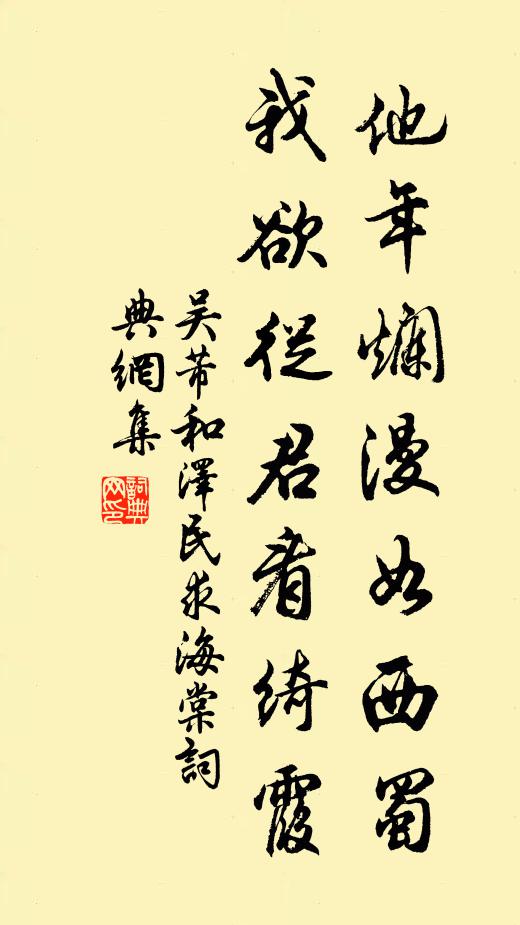 他年爛漫如西蜀
我欲從君看綺霞
吴芾和澤民求海棠詞
典網集
詞典網印